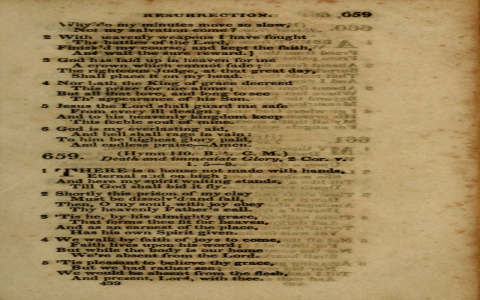 RESURRECTION. 659
Why do my minutes move so slow,
Nor my salvation come?
2 With heavenly weapons I have fought
The battles of the Lord,
Finish'd my course, and kept the faith,
And wait the sure reward.]
3 God has laid up in heaven for me
A crown which cannot fade;
The righteous Judge, at that great day,
Shall place it on my head.
4 Nor hath the King of grace decreed
This prize for me alone;
But all that love, and long to see
Th' appearance of his Son.
5 Jesus the Lord shall guard me safe
From every ill design;
And to his heavenly kingdom keep
This feeble soul of mine.
6 God is my everlasting aid,
And hell shall rage in vain;
To him be highest glory paid,
And endless praise.—Amen.
659. (Hymn 110. B. 1. C. M.)
Death and immediate Glory, 2 Cor. v.
1. 5—8.
1 THERE is a house not made with hands,
Eternal and on high;
And here my spirit waiting stands,
Till God shall bid it fly.
2 Shortly this prison of my clay
Must be dissolv'd and fall,
Then, O my soul, with joy obey
Thy heavenly Father's call.
3 'Tis he, by his almighty grace,
That forms thee fit for heaven,
And as an earnest of the place,
Has his own Spirit given.
4 We walk by faith of joys to come,
Faith lives upon his word;
But while the body is our home
We're absent from the Lord.
5 'Tis pleasant to believe thy grace,
But we had rather see;
We would be absent from the flesh,
And present, Lord, with thee.
439